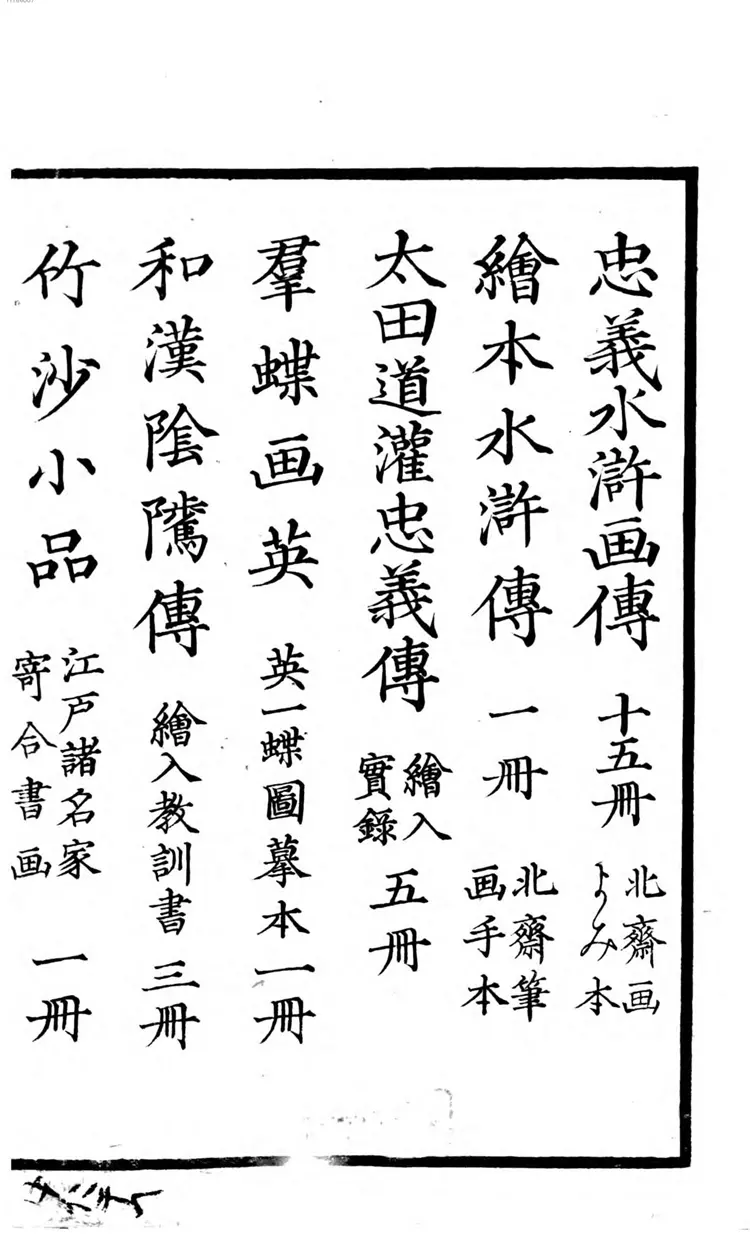 忠義水滸画傳 十五冊 北齋画 よみ本
繪本水滸傳 一冊 北齋筆 画手本
太田道灌忠義傳 繪入 實錄 五冊
羣蝶画英 英一蝶圖摹本一冊
和漢陰隲傳 繪入教訓書 三冊
竹沙小品 江戸諸名家 寄合書画 一冊